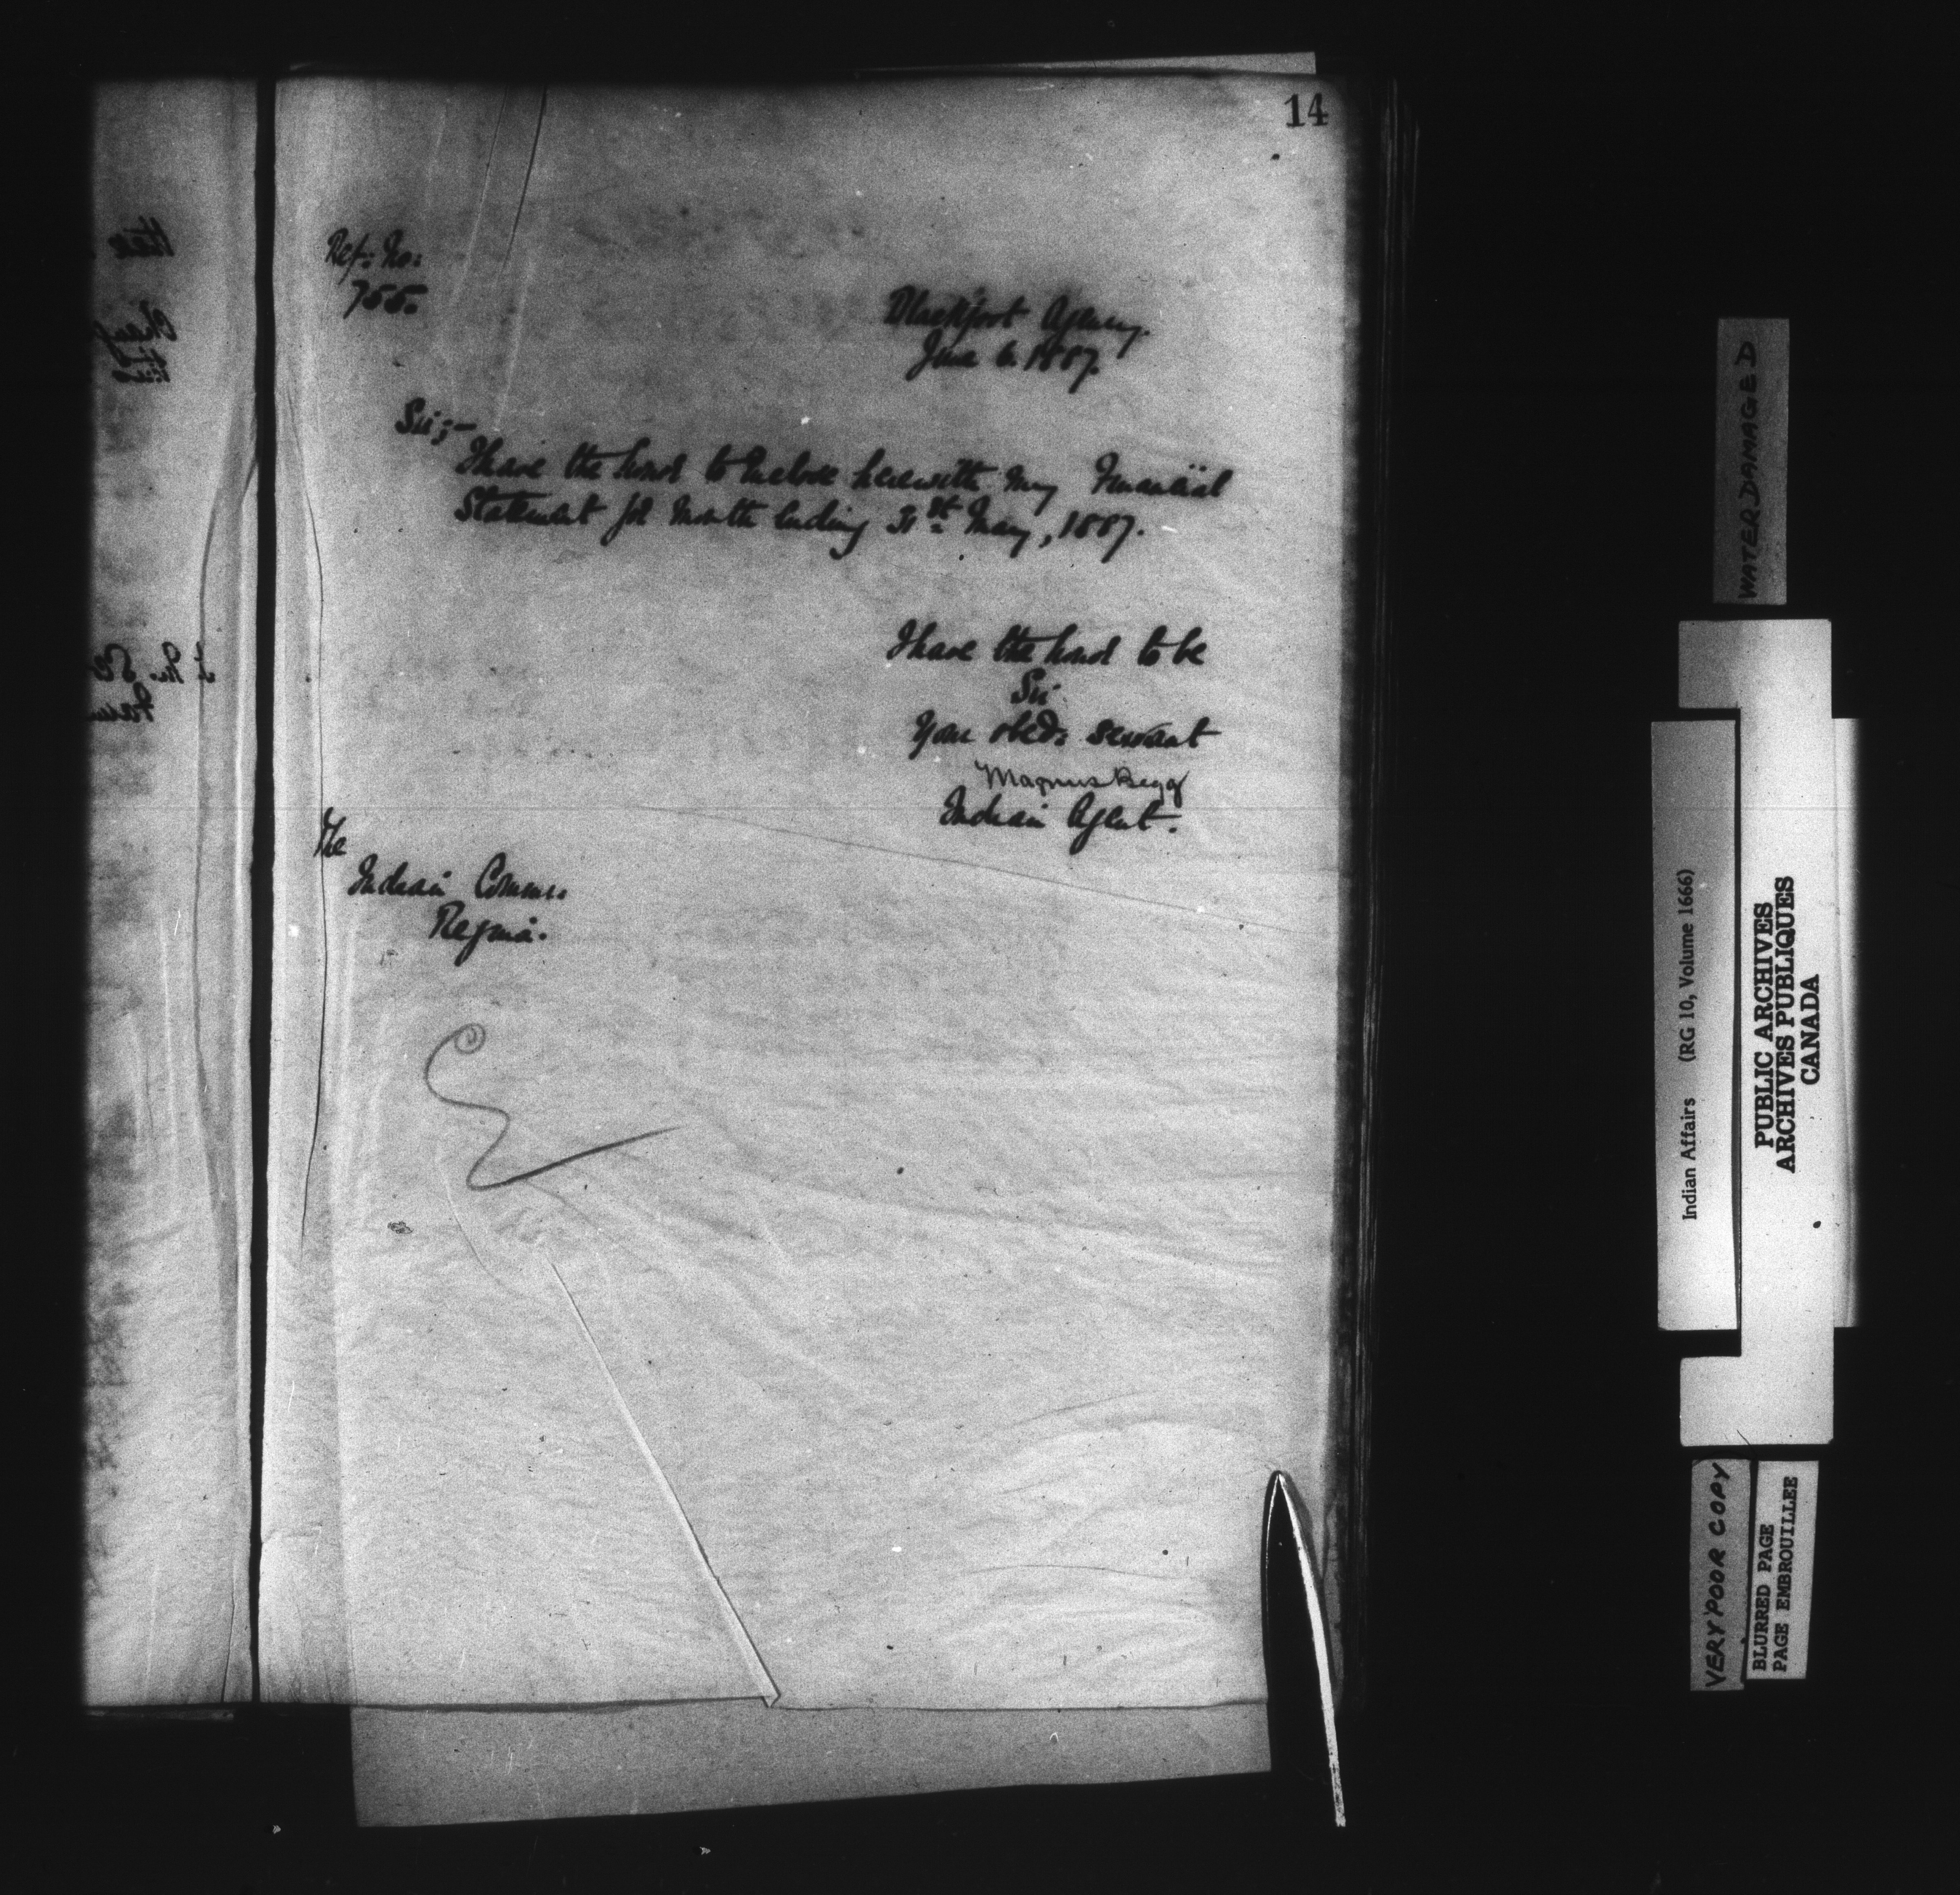 14
Ref: No:
755.
Blackfoot Agency.
June 6. 1887.
Sir;-
I have the honor to Enclose herewith my Financial
Statement for Month Ending 31st May, 1887.
I have the honor to be
Sir
Your obed: servant
Magnus Begg
Indian Agent.
The
Indian Commr.
Regina.
WATER DAMAGED
Indian Affairs (RG 10, Volume 1666)
PUBLIC ARCHIVES
ARCHIVES PUBLIQUES
CANADA
VERY POOR COPY
BLURRED PAGE
PAGE EMBROUILLEE